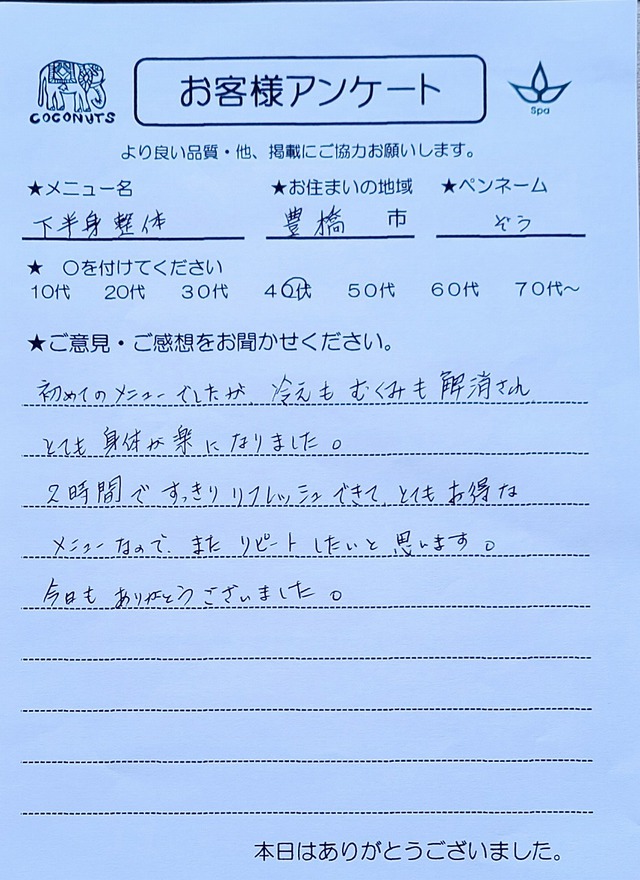 COCONUTS
お客様アンケート
Spa
より良い品質・他、掲載にご協力お願いします。
★メニュー名 ★お住まいの地域 ★ペンネーム
下半身整体 豊橋 市 ぞう
★ 〇を付けてください
10代 20代 30代 40代 50代 60代 70代~
★ご意見・ご感想をお聞かせください。
初めてのメニューでしたが、冷えもむくみも解消され
とても身体が楽になりました。
2時間ですっきりリフレッシュできて、とてもお得な
メニューなので、またリピートしたいと思います。
今日もありがとうございました。
本日はありがとうございました。